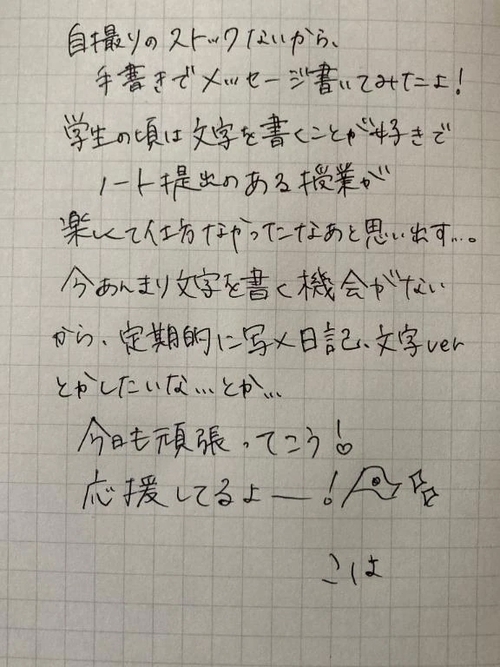 自撮りのストックないから、
手書きでメッセージ書いてみたよ!
学生の頃は文字を書くことが好きで
ノート提出のある授業が
楽しくて仕方なかったなあと思い出す...。
今あんまり文字を書く機会がない
から、定期的に写メ日記、文字ver
とかしたいな...とか...
今日も頑張ってこう!
応援してるよー!
こはよ